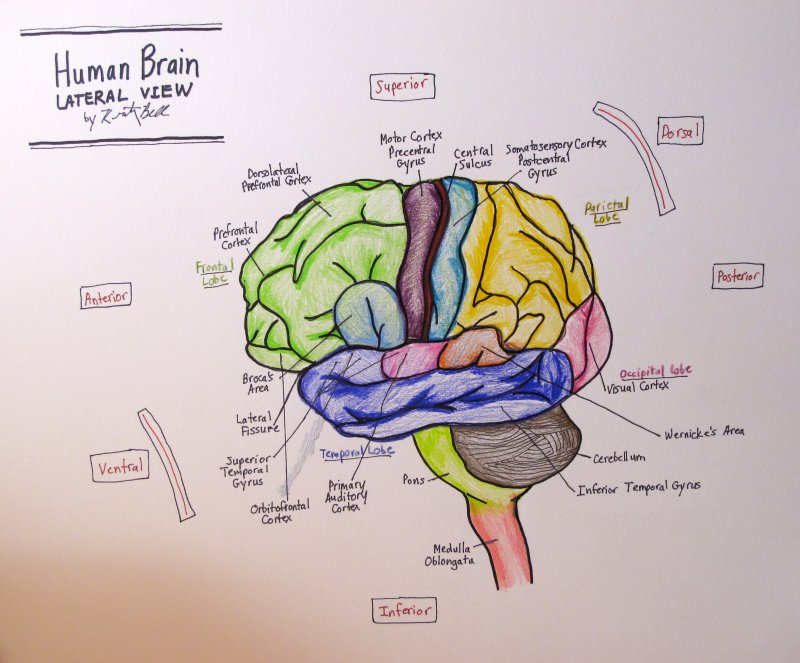 Human Brain
LATERAL VIEW
by
Superior
Dorsal
Motor Cortex
Precentral
Gyrus
Central
Sulcus
Somatosensory Cortex
Postcentral
Gyrus
Dorsolateral
Prefrontal Cortex
Parietal
Lobe
Prefrontal
Cortex
Frontal
Lobe
Anterior
Posterior
Broca's
Area
Occipital Lobe
Visual Cortex
Lateral
Fissure
Wernicke's Area
Superior
Temporal
Gyrus
Temporal Lobe
Cerebellum
Ventral
Primary
Auditory
Cortex
Pons
Inferior Temporal Gyrus
Orbitofrontal
Cortex
Medulla
Oblongata
Inferior